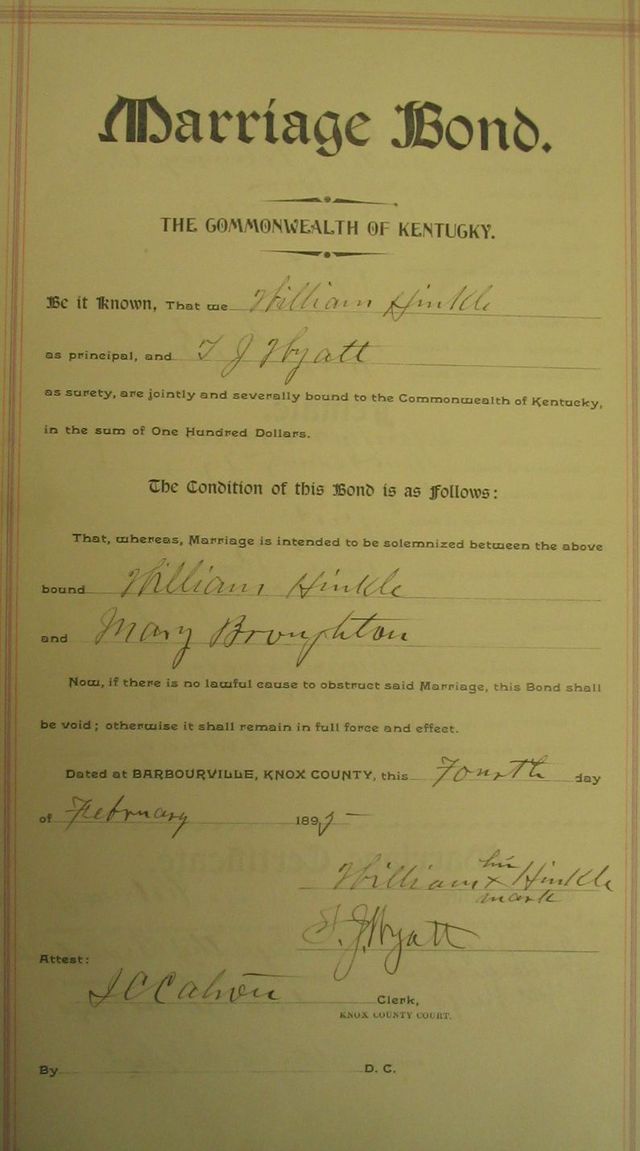 Marriage Bond.
THE COMMONWEALTH OF KENTUCKY.
Be it Known, That we William Hinkle
as principal, and T J Wyatt
as surety, are jointly and severally bound to the Commonwealth of Kentucky,
in the sum of One Hundred Dollars.
The Condition of this Bond is as follows:
That, whereas, Marriage is intended to be solemnized between the above
bound William Hinkle
and Mary Broughton
Now, if there is no lawful cause to obstruct said Marriage, this Bond shall
be void; otherwise it shall remain in full force and effect.
Dated at BARBOURVILLE, KNOX COUNTY, this Fourth day
of February 189
William his x mark Hinkle
T. J. Wyatt
Attest:
Clerk,
KNOX COUNTY COURT.
By D. C.